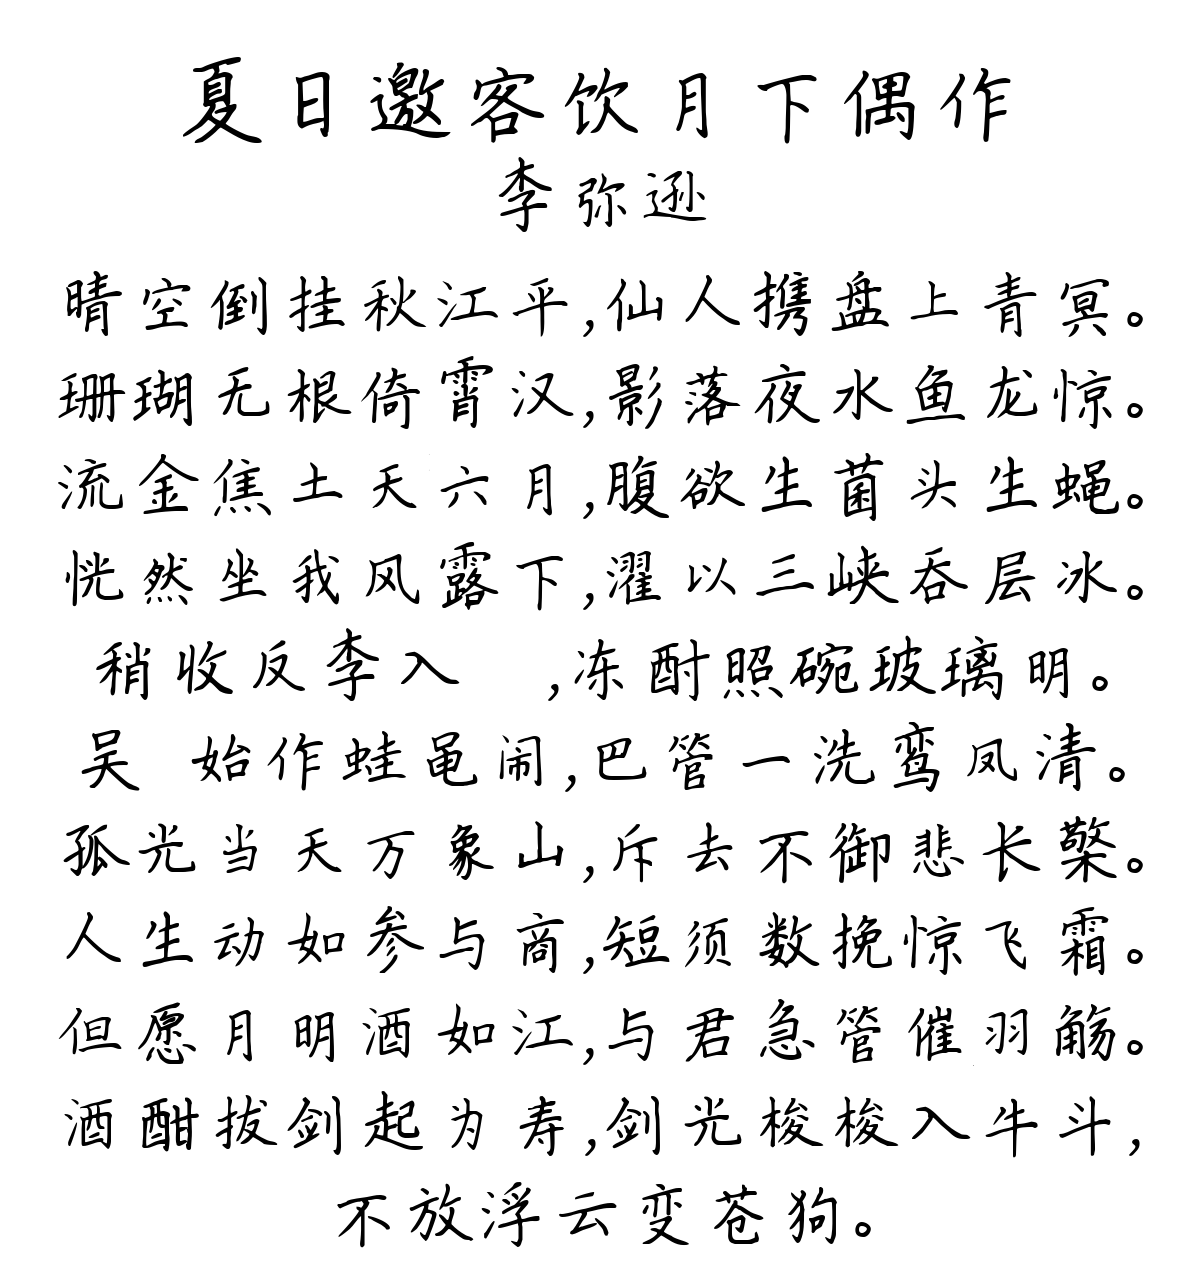 夏日邀客饮月下偶作
李弥逊
晴空倒挂秋江平,仙人携盘上青冥。
珊瑚无根倚霄汉,影落夜水鱼龙惊。
流金焦土天六月,腹欲生菌头生蝇。
恍然坐我风露下,濯以三峡吞层冰。
稍收反李入 ,冻酎照碗玻璃明。
吴 始作蛙黾闹,巴管一洗鸾凤清。
孤光当天万象山,斥去不御悲长檠。
人生动如参与商,短须数挽惊飞霜。
但愿月明酒如江,与君急管催羽觞。
酒酣拔剑起为寿,剑光梭梭入牛斗,
不放浮云变苍狗。